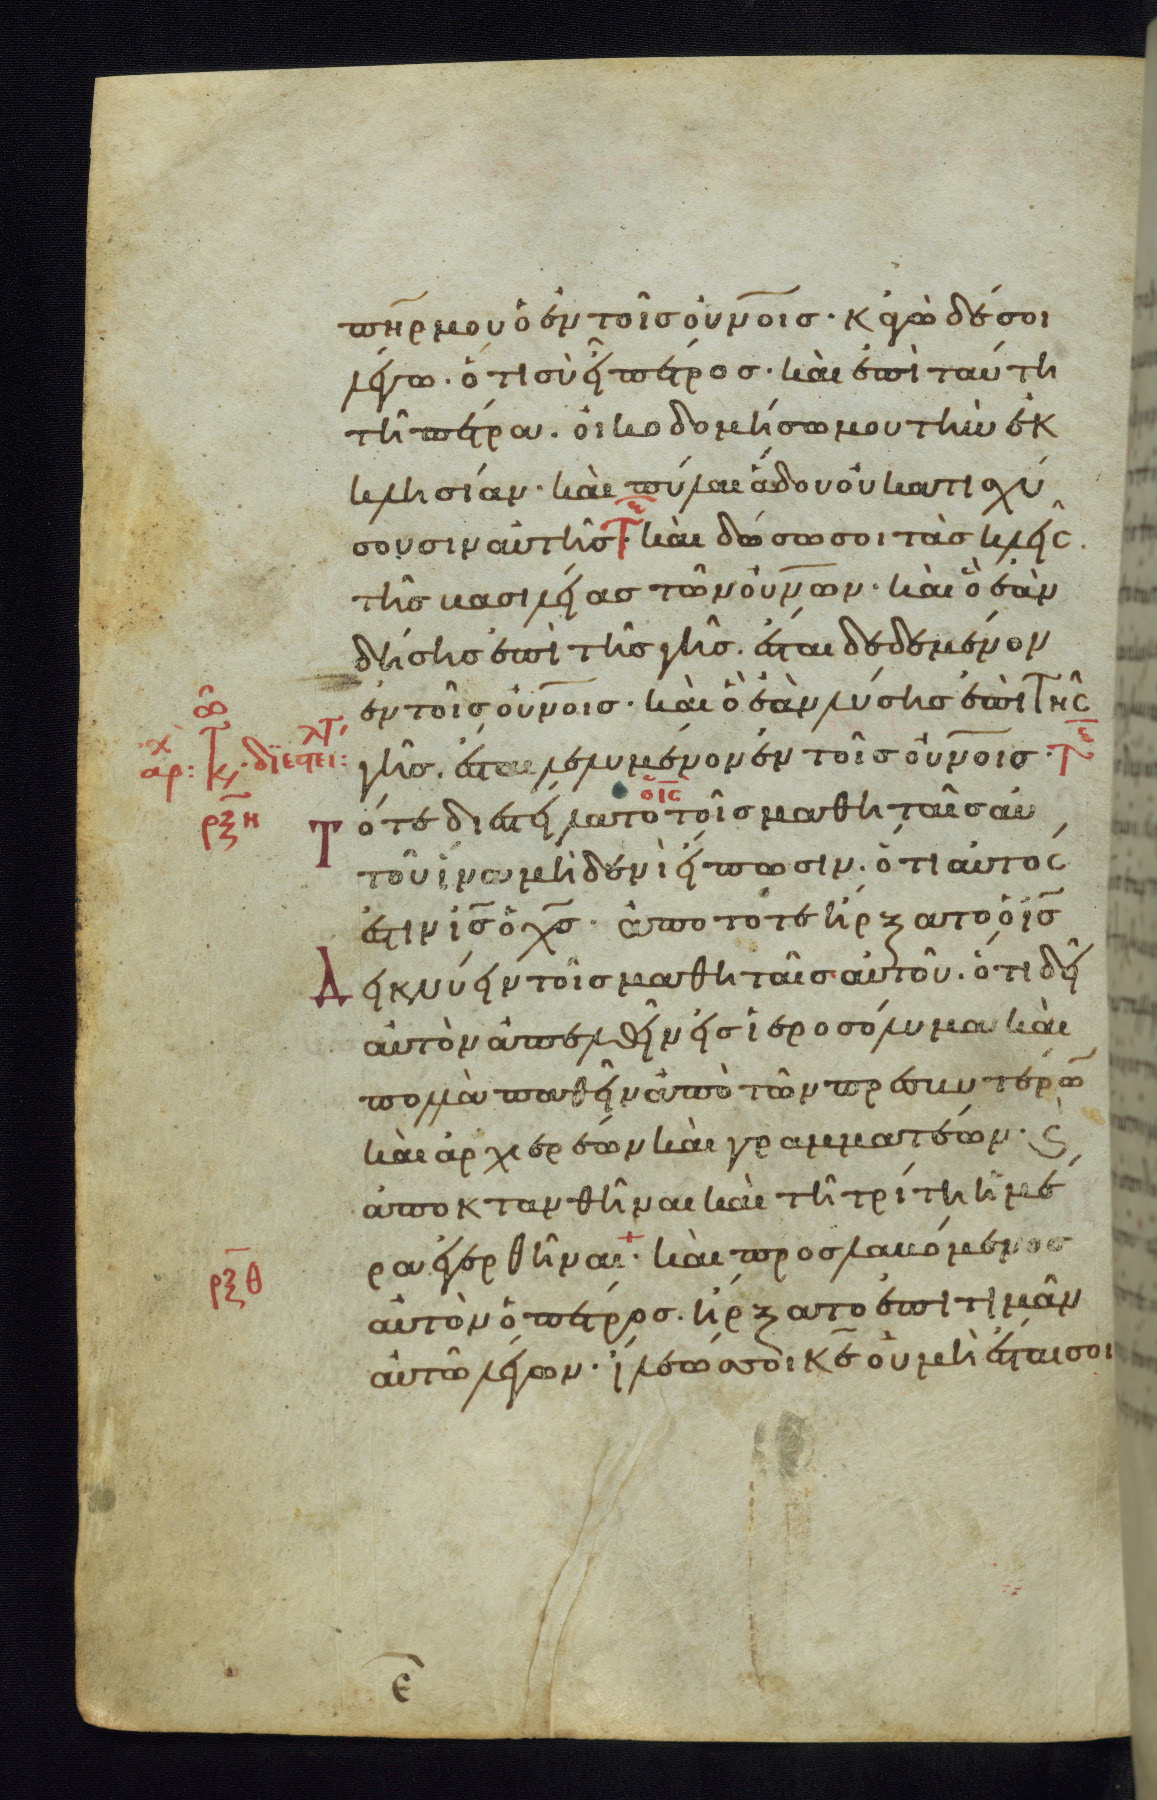 π̅η̅ρ̅ μου ὁ ἐν τοῖς οὐν̅οις· κἀγὼ δέ σοι
λέγω· ὅτι σὺ εἶ πέτρος· καὶ ἐπὶ ταύτη
τῆ πέτρα· οἰκοδομήσω μου τὴν ἐκ
κλησίαν· καὶ πύλαι ἅδου οὐ κατισχύ
σουσιν αὐτῆς· καὶ δώσω σοι τὰς κλεῖς.
τῆς βασιλείας τῶν οὐν̅ων· καὶ ὃ ἐὰν
δήσης ἐπὶ τῆς γῆς. ἔσται δεδεμένον
ἐν τοῖς οὐν̅οις· καὶ ὃ ἐὰν λύσης ἐπὶ τῆς
γῆς. ἔσται λελυμένον ἐν τοῖς οὐν̅οις·
ὁ ι̅ς̅
ρ̅ξ̅η̅
Τότε διεστείλατο τοῖς μαθηταῖς αὐ
τοῦ ἵνα μηδενὶ εἴπωσιν. ὅτι αὐτός
ἐστιν ι̅ς̅ ὁ χ̅ς̅· ἀπο τότε ἤρξατο ὁ ι̅ς̅
Δεικνύειν τοῖς μαθηταῖς αὐτοῦ. ὅτι δεῖ
αὐτὸν ἀπελθεῖν εἰς ἱεροσόλυμα καὶ
πολλὰ παθεῖν ἀπὸ τῶν πρεσβυτέρω̅
καὶ ἀρχιερέων καὶ γραμματέων· ϗ
ἀποκτανθῆναι καὶ τῆ τρίτη ἡμέ
ρα ἐγερθῆναι· καὶ προσλαβόμενος
ρ̅ξ̅θ̅
αὐτὸν ὁ πέτρος. ἤρξατο ἐπιτιμᾶν
αὐτῶ λέγων· ἵλεώς σοι κ̅ε̅ οὐ μὴ ἔσται σοι
ε̅